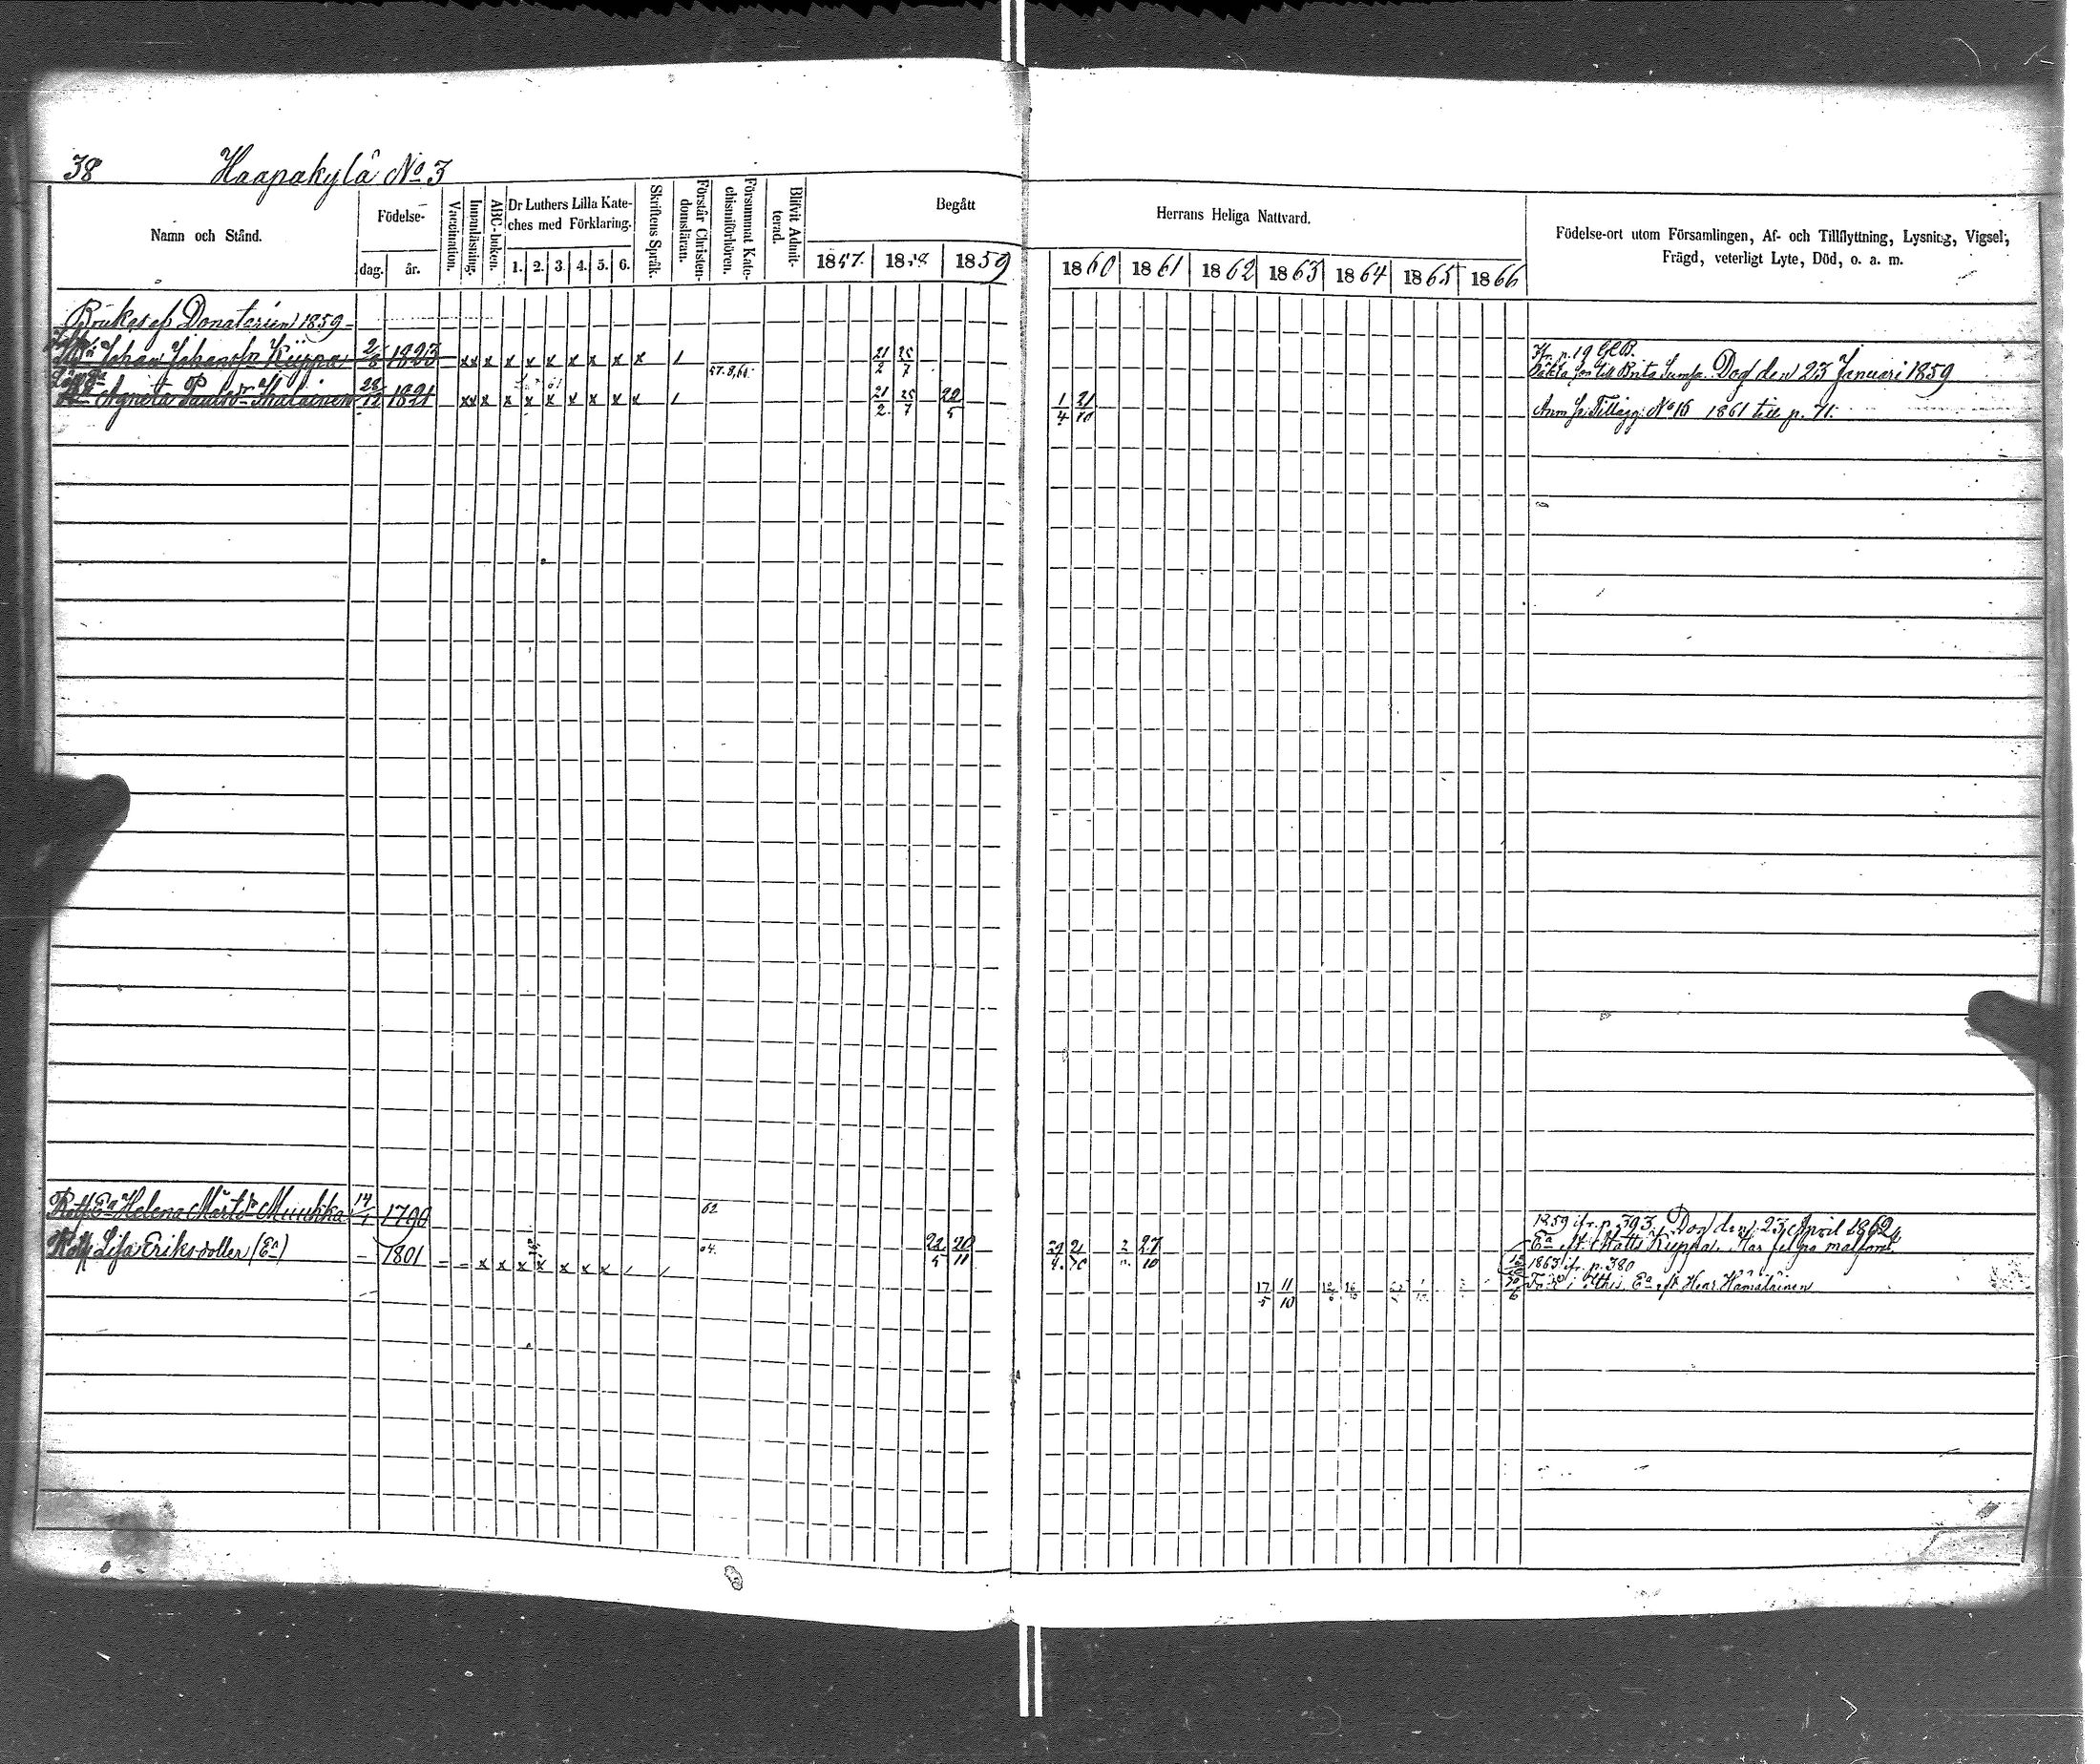 38 Haapakylä No 3
Namn och Stånd.
Födelse-
dag. år.
Vaccination.
Innanläsning.
ABC-boken.
Dr Luthers Lilla Kate-
ches med Förklaring.
1. 2. 3. 4. 5. 6.
Skriftens Språk.
Förstår Christen-
domsläran.
Försummat Kate-
chismiförhören.
Blifvit Admit-
terad.
Begått
Herrans Heliga Nattvard.
1857. 1858. 1859 1860 1861 1862 1863 1864 1865 1866
Födelse-ort utom Församlingen, Af- och Tillflyttning, Lysning, Vigsel,
Frägd, veterligt Lyte, Död, o. a. m.
Brukas af Donatarien 1859
Johan Johansson Kiippa 2/8 1823 x x x x x x x x x x / 57. 8, 61. 21/2 25/7 Ifr. p. 19
till Brita Sumpa. Dog den 23 Januari 1859
Agneta Paulsdr Ihalainen 28/12 1821 x x x x x x x x x x / 21/2 25/7 22/5 1/4 21/10 Anm Tillägg. No 16 1861 till p. 71.
Helena Märtsdr Muukka 14/1 1790 62 1859 ifr. p. 393. Dog den 23 April 1862
Lisa Eriksdotter (Ea) - 1801 - - x x x x x x x / / 04. 22/5 20/11 27/10 Ea eft. Matts Kiippa.
1863 ifr. p. 380
17/5 11/10 Ea eft. Hämäläinen